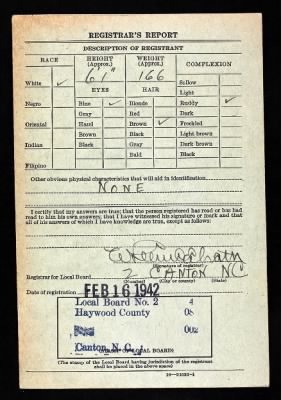 REGISTRAR'S REPORT
DESCRIPTION OF REGISTRANT
RACE HEIGHT (Approx.) WEIGHT (Approx.) COMPLEXION
White ✓ 6'1" 166 Sallow
EYES HAIR Light
Negro Blue ✓ Blonde Ruddy ✓
Gray Red Dark
Oriental Hazel Brown ✓ Freckled
Brown Black Light brown
Indian Black Gray Dark brown
Bald Black
Filipino
Other obvious physical characteristics that will aid in identification
NONE
I certify that my answers are true; that the person registered has read or has had
read to him his own answers; that I have witnessed his signature or mark and that
all of his answers of which I have knowledge are true, except as follows:
(Signature of registrar)
Registrar for Local Board 2 CANTON NC
(Number) (City or county) (State)
Date of registration FEB 16 1942
Local Board No. 2 4
Haywood County 08
002
Canton, N. C.
(STAMP OF LOCAL BOARD)
(The stamp of the Local Board having jurisdiction of the registrant
shall be placed in the above space)